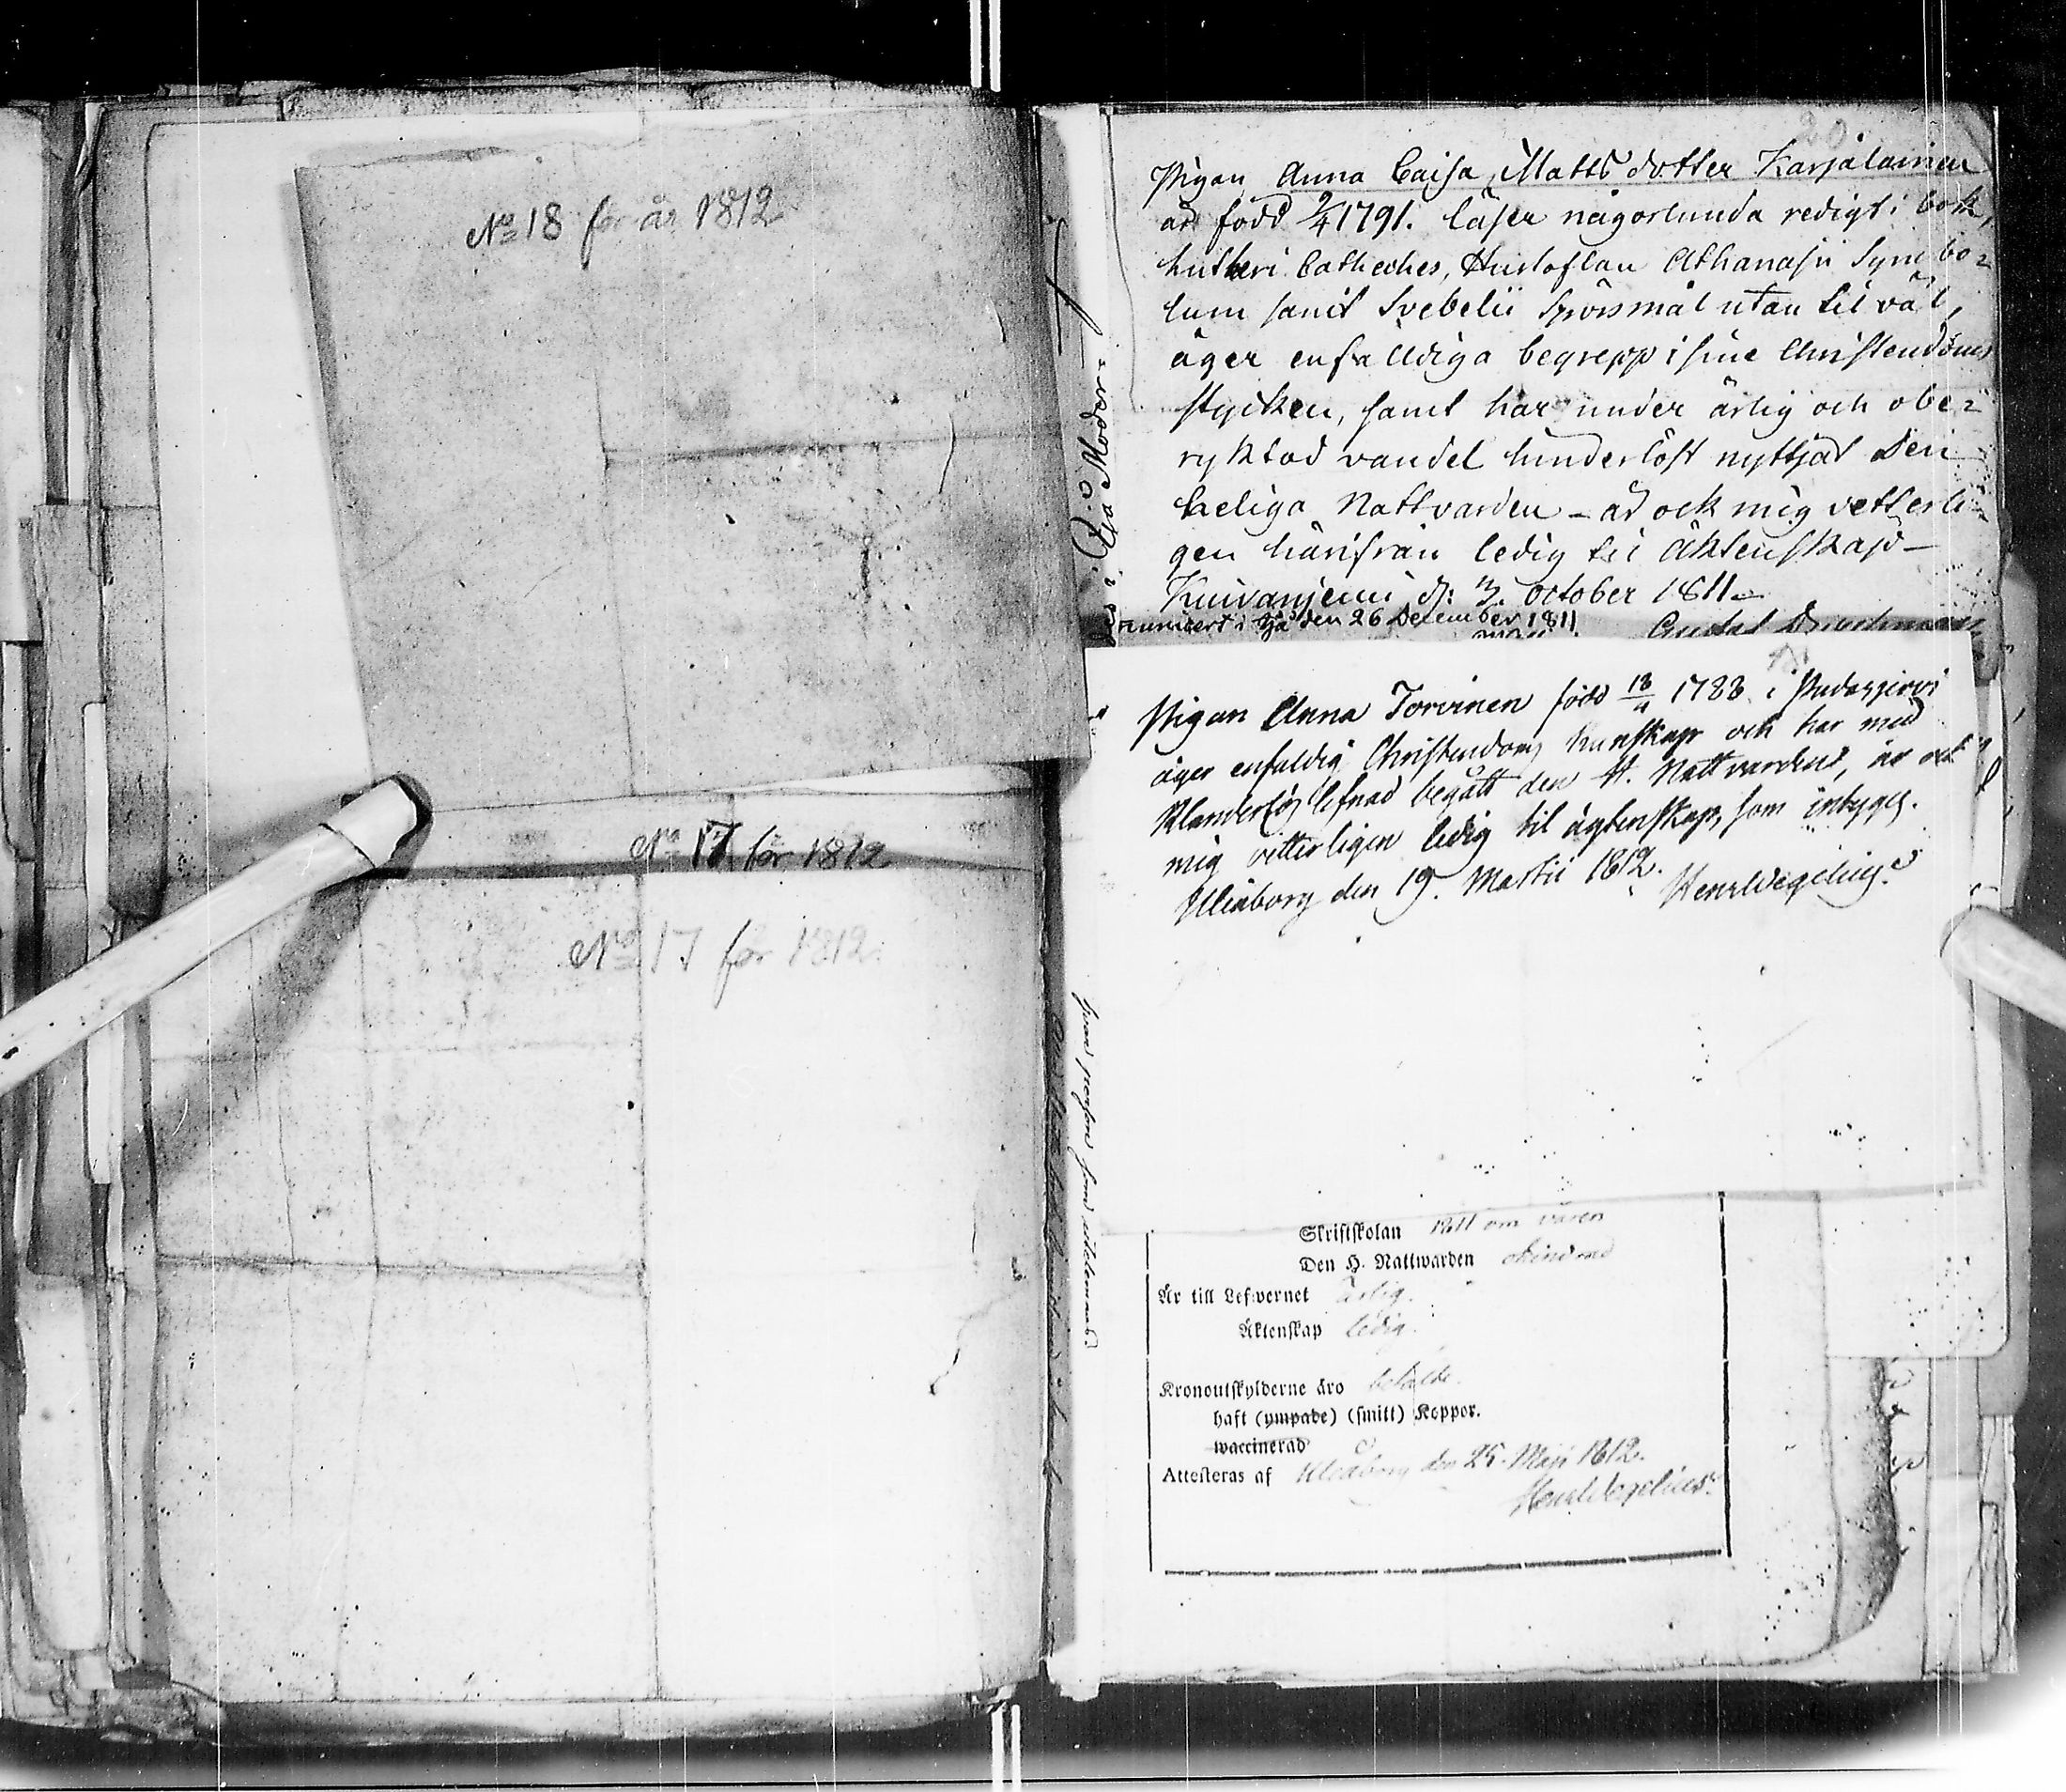 No 18 för år 1812
No 17 för 1812
No 17 för 1812.
20
Pigan Anna Caisa Matts dotter Karjalainen
är född 9/4 1791. läser någorlunda redigt i bok,
Lutheri Catheches, Hustaflan Athanasii Symbo=
lum samt Svebelii Spörsmål utan til väl,
äger enfalldiga begrepp i sine Christendoms
stycken, samt har under ärlig och obe=
ryktad vandel hinderlöst nyttjat Den
heliga Nattvarden – är ock mig vetterli=
gen härifrån ledig til Äktenskap –
Kuivaniemi d: 3. october 1811 –
i Ijå den 26 December 1811
Gustaf
Pigan Anna Torvinen född 18/11 1788 i Pudasjervi
äger enfaldig Christendoms kunskap och har med
klanderlös lefnad begått den H. Nattvarden, är ock
mig vitterligen ledig til ägtenskap, som intygas.
Uleåborg den 19. Martii 1812. HenrWegelius
Skriftskolan 1811 om våren
Den H. Nattwarden
Är till Lefwernet ärlig.
Äktenskap ledig.
Kronoutskylderne äro betalde.
haft (ympade) (smitt) Koppor.
waccinerad
Attesteras af Uleåborg den 25. Maji 1812.
HenrWegelius